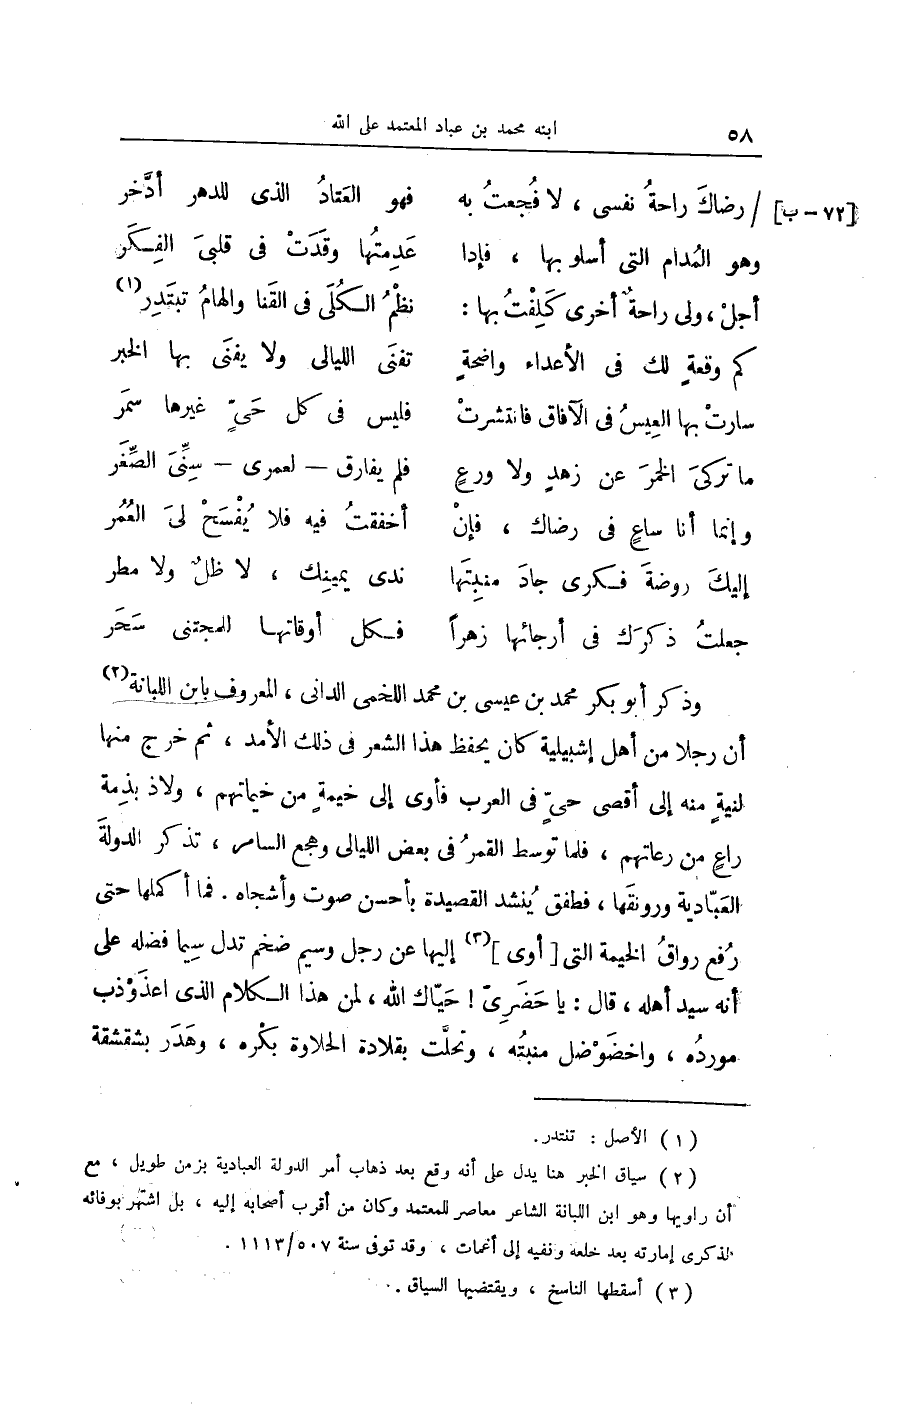 ٥٨ ابنه محمد بن عباد المعتمد على الله
[٧٢ – ب] / رضاكَ راحةُ نفسى ، لا فُجعتُ به فهو العَتادُ الذى للدهر أدَّخر
وهو المُدام التى أسلو بها ، فإذا عَدِمتُها وقَدَتْ فى قلبىَ الفِكَر
أجلْ ، ولى راحةٌ أخرى كَلِفْتُ بها : نظْمُ الكُلَى فى القَنا والهامُ تبتَدِر(١)
كم وقعةٍ لك فى الأعداء واضحةٍ تفنَى الليالى ولا يفنَى بها الخبر
سارتْ بها العِيسُ فى الآفاق فانتشرتْ فليس فى كل حَىٍّ غيرها سمَر
ما تركىَ الخمرَ عن زهدٍ ولا ورعٍ فلم يفارق – لعمرى – سِنِّىَ الصِّغَر
وإنما أنا ساعٍ فى رضاك ، فإنْ أخفقتُ فيه فلا يُفْسَحْ لىَ العُمُر
إليكَ روضةَ فكرى جادَ منبِتَها ندى يمينِك ، لا ظلٌ ولا مطر
جعلتُ ذكرَك فى أرجائها زهراً فكل أوقاتها للمجتنى سَحَر
وذكر أبو بكر محمد بن عيسى بن محمد اللخمى الدانى ، المعروف بابن اللبانة(٢)
أن رجلا من أهل إشبيلية كان يحفظ هذا الشعر فى ذلك الأمد ، ثم خرج منها
لنيةٍ منه إلى أقصى حىٍّ فى العرب فأوى إلى خيمةٍ من خيماتهم ، ولاذ بذِمة
راعٍ من رعاتهم ، فلما توسط القمرُ فى بعض الليالى وهجع السامر ، تذكر الدولةَ
العبّادية ورونقَها ، فطفق يُنشد القصيدة بأحسن صوت وأشجاه . فما أكملها حتى
رُفع رواقُ الخيمة التى [ أوى ](٣) إليها عن رجل وسيم ضخم تدل سِيما فضله على
أنه سيد أهله ، قال : يا حَضَرِىّ ! حَيّاك الله ، لمن هذا الكلام الذى اعذَوْذب
موردُه ، واخضَوْضل منبتُه ، وتحلّت بقلادة الحلاوة بكْره ، وهَدَر بشقشقة
(١) الأصل : تنتدر .
(٢) سياق الخبر هنا يدل على أنه وقع بعد ذهاب أمر الدولة العبادية بزمن طويل ، مع
أن راويها وهو ابن اللبانة الشاعر معاصر للمعتمد وكان من أقرب أصحابه إليه ، بل اشتهر بوفائه
لذكرى إمارته بعد خلعه ونفيه إلى أغمات ، وقد توفى سنة ٥٠٧/١١١٣ .
(٣) أسقطها الناسخ ، ويقتضيها السياق .